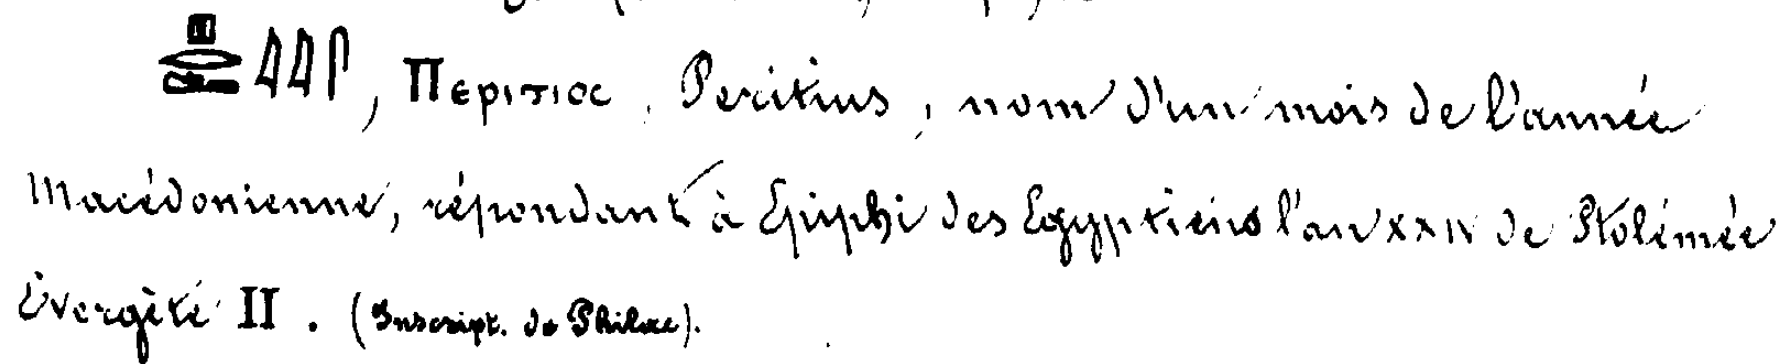 , Περιτιος, Peritius, nom d'un mois de l'année
Macédonienne, répondant à Epiphi des Egyptiens l'an XXIV de Ptolémée
Évergète II. (Inscript. de Philae).